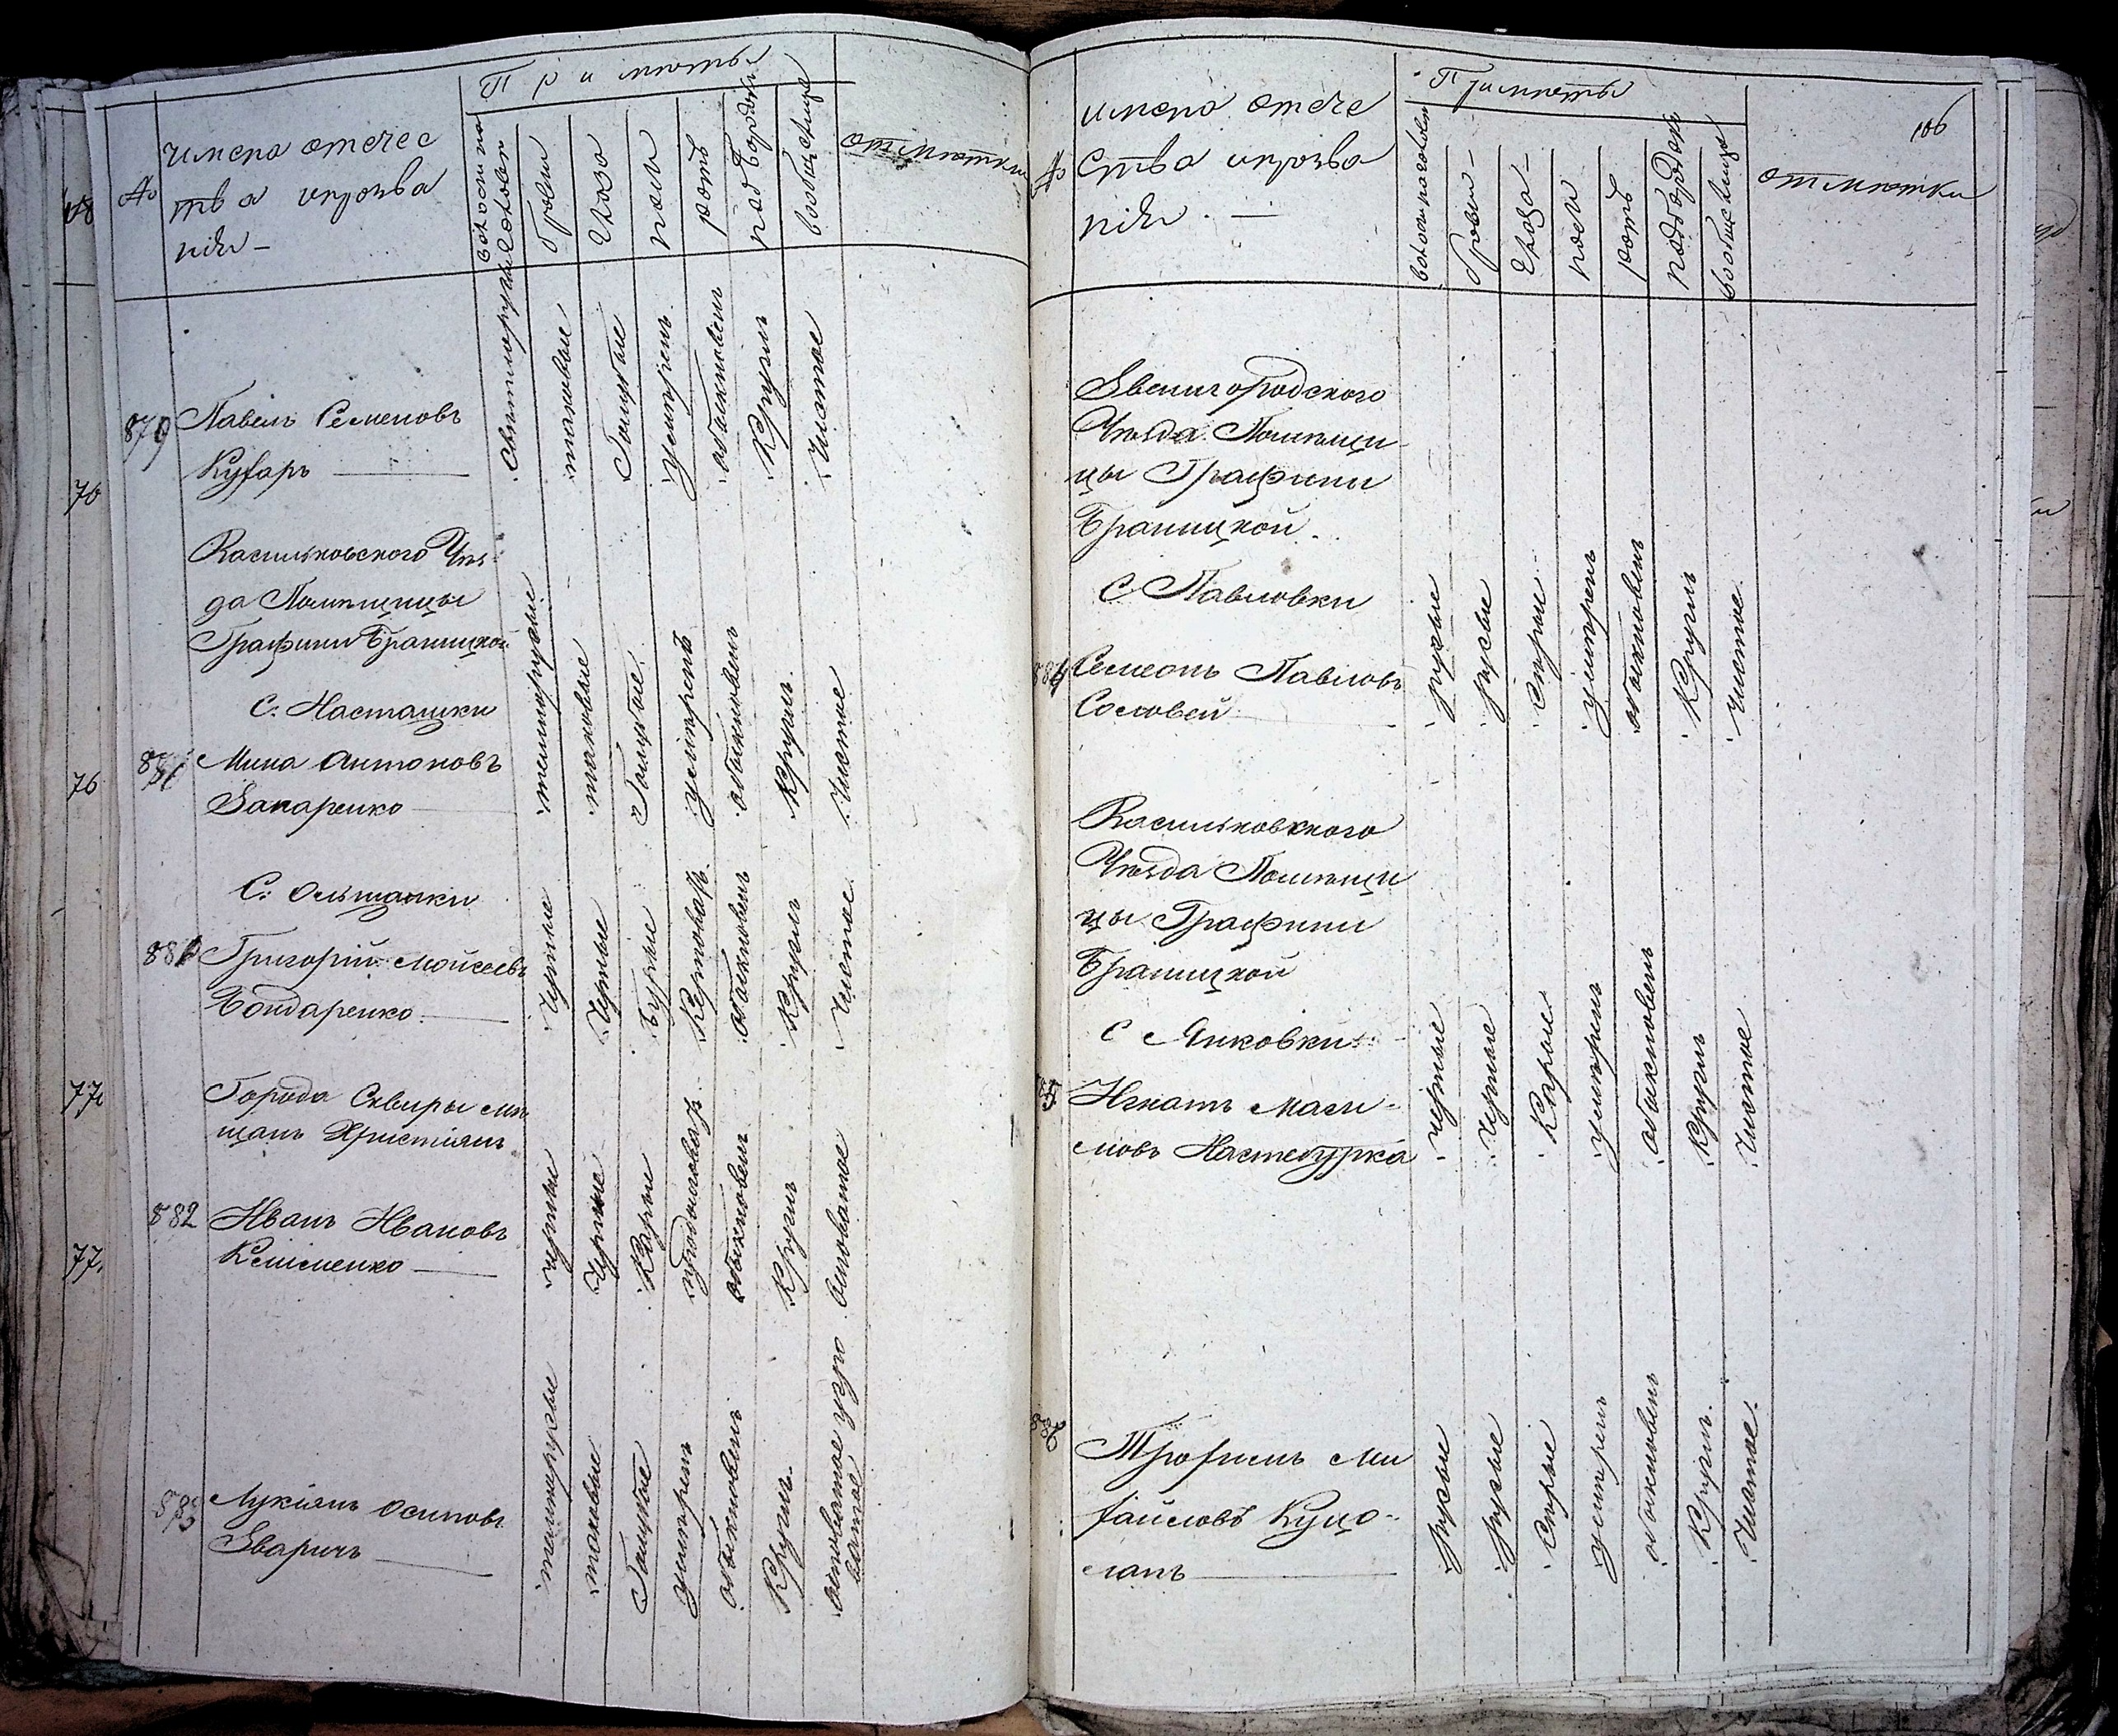 №
имена отечес
тва ипрозва
нiи —
Примѣты
волосы на голове
брови
Глаза
носъ
ротъ
подбородокъ
вообще лице
отмѣтки
879
Павелъ Семеновъ
Куѳаръ
Светлорусые
таковые
Голубые
умѣренъ
обыкновенъ
Круглъ
Чистое
Васильковского Уѣз
да Помѣщицы
Графини Браницкой
С: Насташки
Мина Антоновъ
Захаренко
темнорусые
таковые
Голубые
умѣренъ
обыкновенъ
Круглъ
Чистое
С: Ольшанки
881
Григорiй Мойсеевъ
Бондаренко
Черные
Черные
Бурые
обыкновенъ
Круглъ
Чистое
Города Сквиры мѣ
щанъ Христiянъ
882
Иванъ Ивановъ
Клименко
черные
Черные
Карые
продолговатъ
обыкновенъ
Круглъ
Осповатое
883
Лукiянъ Осиповъ
Зваричъ
темнорусые
таковые
Голубые
умѣренъ
обыкновенъ
Круглъ
осповатое угро
ватое
106
№
имена отече
ства ипрозва
нiи. —
Примѣты
волосы наголовѣ
брови
Глаза
носъ
ротъ
подбородокъ
вообще лице
отмѣтки
Звенигородского
Уѣзда Помѣщи
цы Графини
Браницкой
С Павловки
884
Семенъ Павловъ
Соловей
русые
русые
Серые
умѣренъ
обыкновенъ
Круглъ
Чистое
Васильковского
Уѣзда Помѣщи
цы Графини
Браницкой
С Янковки
Игнатъ Макси-
мовъ
черные
Черные
Карые
умѣренъ
обыкновенъ
Круглъ
Чистое
Трофимъ Ми
ѳайловъ Куцо-
лапъ
русые
русые
Серые
умѣренъ
обыкновенъ
Круглъ.
Чистое.